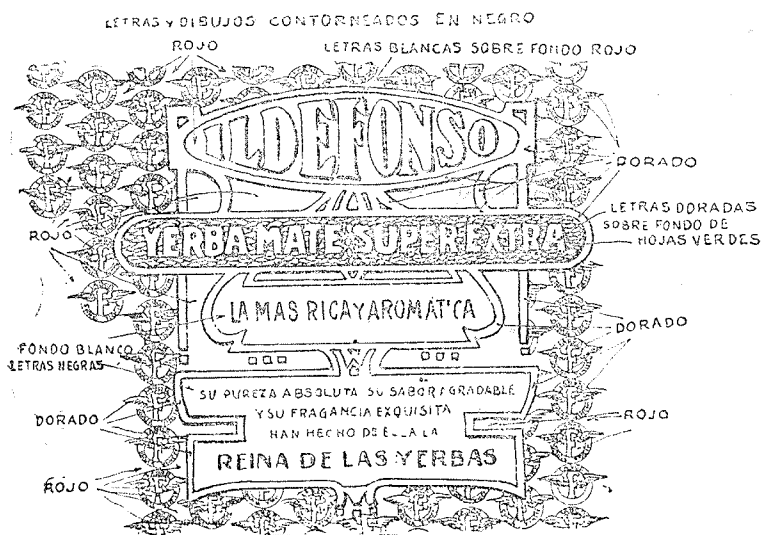 LETRAS Y DIBUJOS CONTORNEADOS EN NEGRO
ROJO
LETRAS BLANCAS SOBRE FONDO ROJO
ILDEFONSO
DORADO
LETRAS DORADAS
SOBRE FONDO DE
HOJAS VERDES
ROJO
YERBA MATE SUPER EXTRA
LA MAS RICA Y AROMÁTICA
DORADO
FONDO BLANCO
LETRAS NEGRAS
SU PUREZA ABSOLUTA SU SABOR AGRADABLE
Y SU FRAGANCIA EXQUISITA
HAN HECHO DE ELLA LA
REINA DE LAS YERBAS
DORADO
ROJO
ROJO